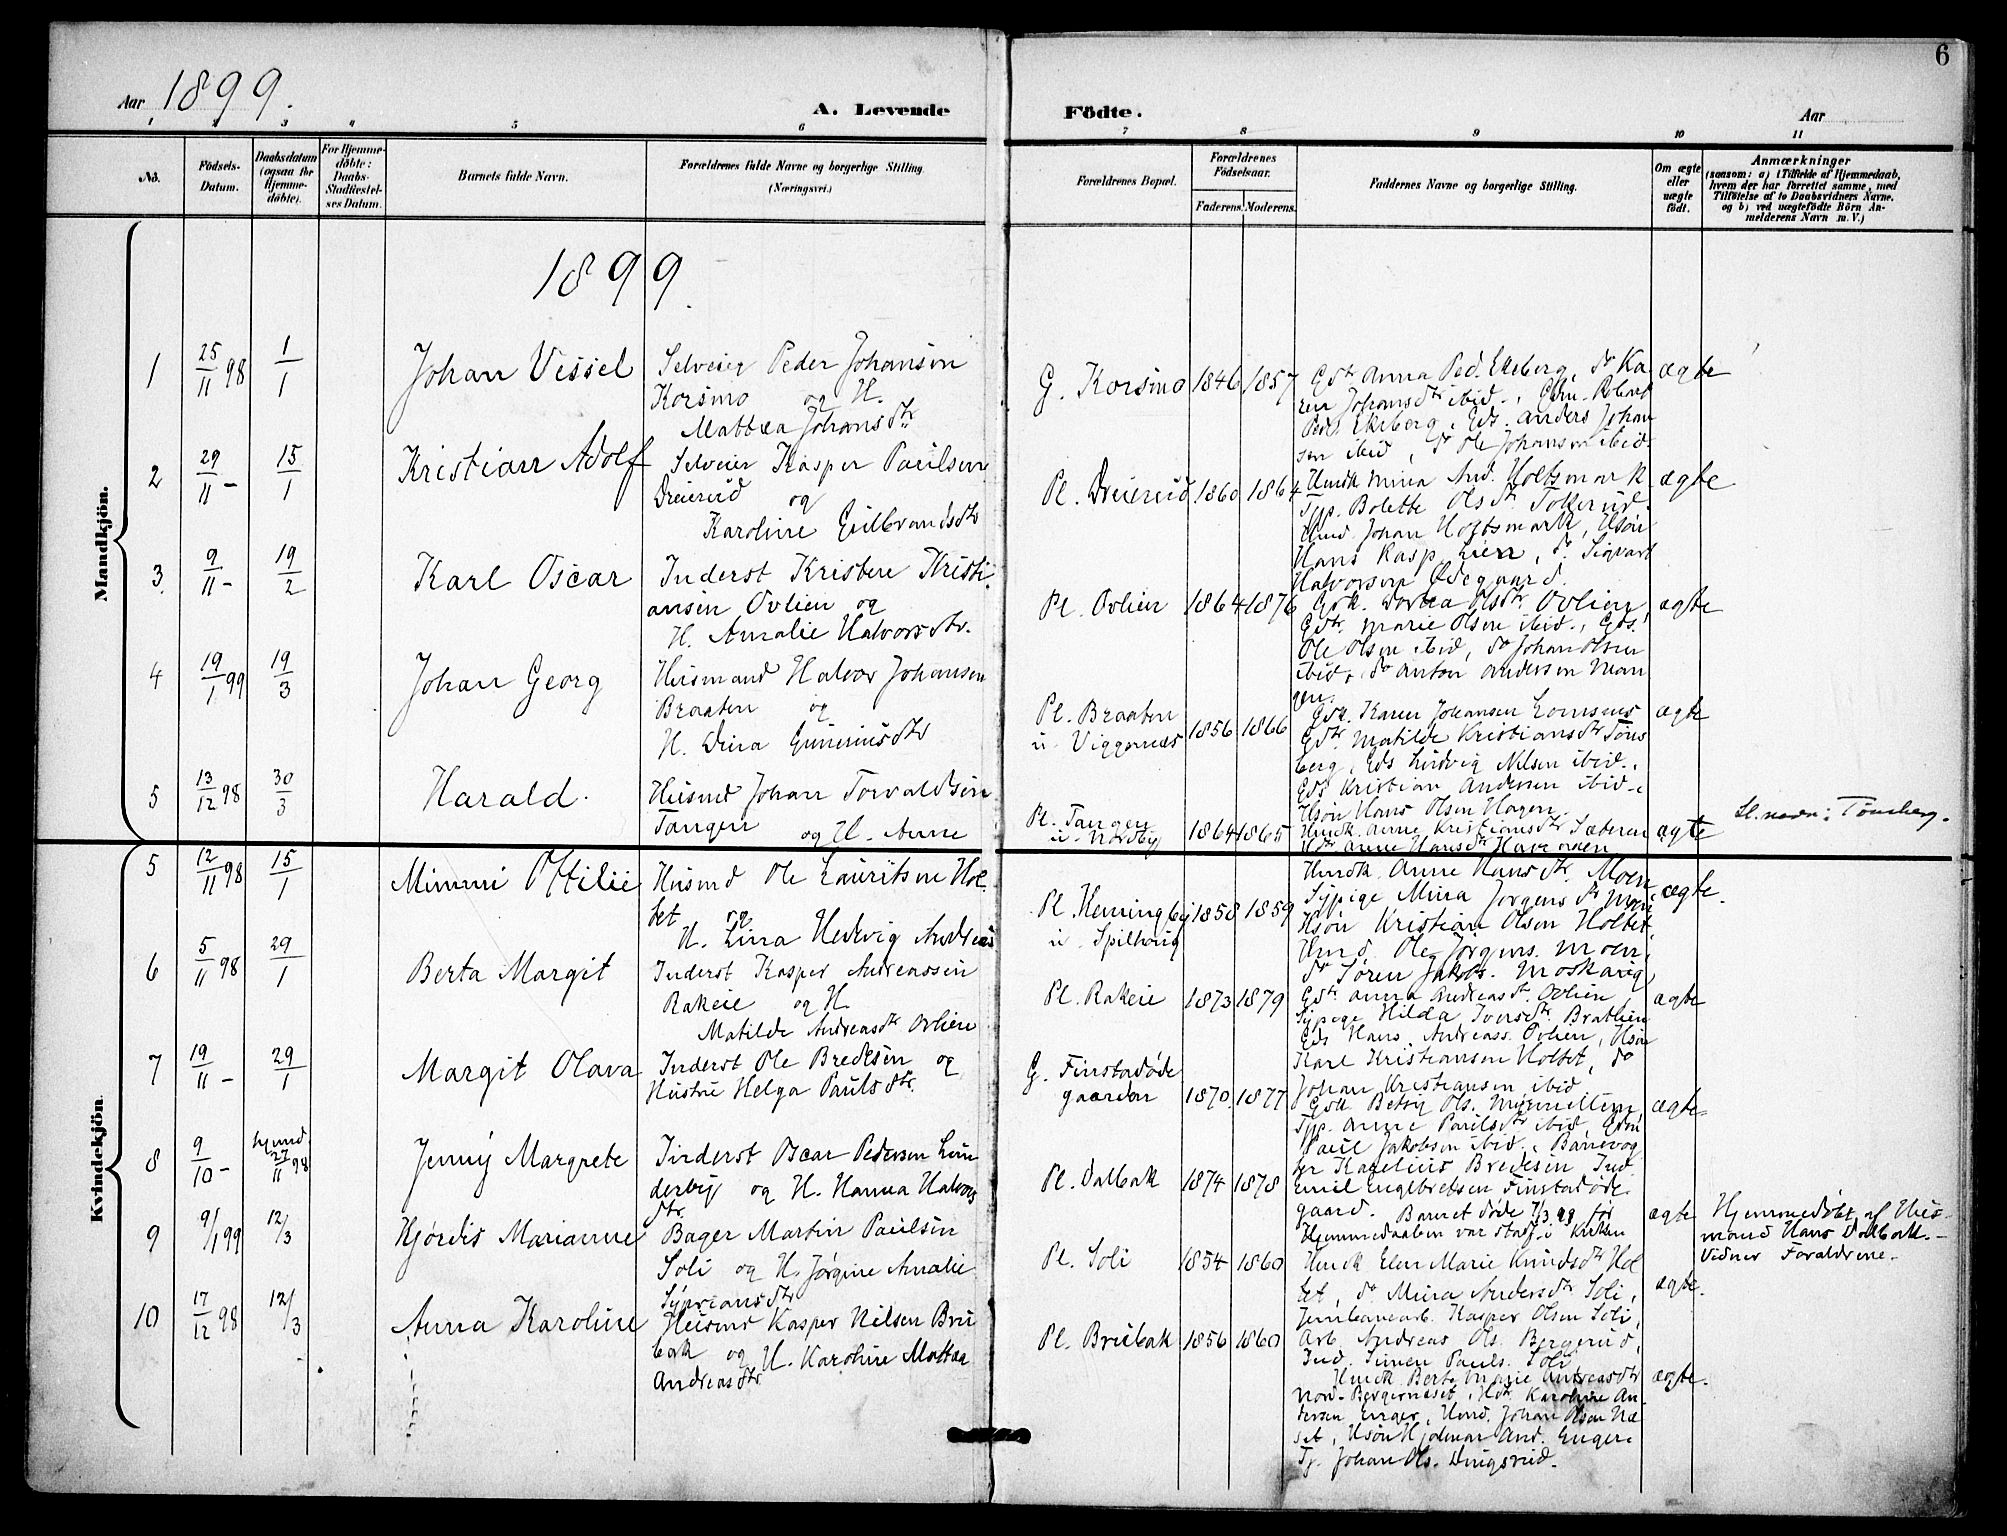 6
Aar 1899.
A. Levende Födte.
Aar
1 2 3 4 5 6 7 8 9 10 11
No.
Födsels-
Datum.
Daabsdatum
(ogsaa for
Hjemme-
döbte).
For Hjemme-
döbte:
Daabs-
Stadfæstel-
ses Datum.
Barnets fulde Navn.
Forældrenes fulde Navne og borgerlige Stilling.
(Næringsvei.)
Forældrenes Bopæl.
Forældrenes
Födselsaar.
Faderens. Moderens.
Faddernes Navne og borgerlige Stilling.
Om ægte
eller
uægte
födt.
Anmærkninger
(saasom: a) i Tilfælde af Hjemmedaab,
hvem der har forrettet samme, med
Tilföielse af to Daabsvidners Navne,
og b) ved uægtefödte Börn An-
melderens Navn m. V.)
1899.
Mandkjön.
1 25/11 98 1/1 Johan Vessel
Selveier Peder Johansen
Korsmo og H.
Mattea Johansdtr
G. Korsmo 1846 1857
Gdtr Anna Ped. Ekeberg, do Ka
ren Johansdtr ibid.,
Peds Ekeberg, Gds. Anders Johan
sen ibid, do Ole Johansen ibid.
ægte
2 29/11 – 15/1 Kristian Adolf
Selveier Kasper Paulsen
Dreierud og
Karoline Gulbrandsdtr
Pl. Dreierud 1860 1864
Hmdk Mina And. Holtsmark
Tjp. Bolette Olsdtr Tokerud
Hmd. Johan Holtsmark, Hsøn
Hans Kasp. Lien, do. Sigvart
Halvorsen Ødegaard.
ægte
3. 9/11 – 19/2 Karl Oscar
Inderst Kristen Kristi-
ansen Ovlien og
H. Amalie Halvorsdtr.
Pl. Ovlien 1864 1876
Gdk. Dortea Olsdtr Ovlien,
Gdtr. Marie Olsen ibid., Gds.
Ole Olsen ibid, do Johan Olsen
ibid, do Anton Andersen Man
gen.
ægte
4 19/1 99 19/3 Johan Georg
Husmand Halvor Johansen
Braaten og
H. Dina Gunerusdtr
Pl. Braaten
u. Viggernæs 1856 1866
Gdk. Karen Johansen
Gdtr. Matilde Kristiansdtr Tøns
berg, Gds Ludvig Nilsen ibid.,
Gds Kristian Andersen ibid.,
Hsøn Hans Olsen Hagen.
ægte
5 13/12 98 30/3 Harald.
Husmd Johan Torvaldsen
Tangen og H. Anne
Pl. Tangen
u. Nordby 1864 1865
Hmdk. Anne Kristiansdtr Sæteren
Hdtr Anne Hansdtr
ægte
Sl.navn: Tønsberg.
Kvindekjön.
5 12/11 98 15/1 Mimmi Ottilie
Husmd Ole Lauritsen Hol
tet og
H. Lina Hedvig Andreas
Pl. Hemingbyj
u. Spilhaug 1858 1859
Hmdk. Anne Hansdtr. Moen
Sypige Mina Jørgensdtr Moen
Hsøn Kristian Olsen Holtet
Hmd. Ole Jørgens. Moen,
do Søren Jakobs. Moskaug
ægte.
6 5/11 98 29/1 Berta Margit
Inderst Kasper Andreassen
Rakeie og H.
Matilde Andreasdtr Ovlien
Pl. Rakeie 1873 1879
Gdtr. Anna Andreasdtr. Ovlien,
Sypige Hilda Iversdtr. Bratlien
Gds Hans Andreass. Ovlien, Hsøn
Karl Kristiansen Holtet, do
Johan Kristiansen ibid
ægte
7 19/11 – 29/1 Margit Olava
Inderst Ole Bredesen og
Hustru Helga Paulsdtr.
G. Finstadøde
gaarden 1870. 1877
Gdk Betsy Ols.
Tjp. Anne Paulsdtr ibid, Gdsn
Paul Jakobsen ibid., Banevog
ter Karelius Bredesen, Ind.
Emil Engebretsen Finstadøde
gaard.
ægte
8 9/10 – hjemd. 27/11 98 Jenny Margrete
Inderst Oscar Pedersen Lun
derbÿ og H. Hanna Halvors
dtr.
Pl. Dalbak 1874 1878
Barnet døde 7/3 99 før
Hjemmedaaben var stadf. i Kirken
ægte
Hjemmedøbt af Hus-
mand Hans Dalbak. –
Vidner Forældrene. –
9 9/1 99 12/3 Hjørdis Marianne
Bager Martin Paulsen
Soli og H. Jørgine Amalie
Sypriansdtr
Pl. Soli 1854 1860
Hmdk Elen Marie Knudsdtr Hol
tet, do Mina Andersdtr Soli,
Jernbanearb. Kasper Olsen Soli,
Arb. Andreas Ols. Bergerud,
Ind. Simen Pauls. Soli
ægte.
10 17/12 98 12/3 Anna Karoline
Husmd Kasper Nilsen Bru
bak og H. Karoline Mattea
Andreasdtr
Pl. Brubak 1856 1860
Hmdk Berte Marie Andreasdtr
Nord-Bergerneset, Hdtr Karoline An
dersen Enger, Hmd. Johan Olsen Næ
set, Hsøn Hjalmar And. Enger.
Tj. Johan Ols. Dingsrud.
ægte.